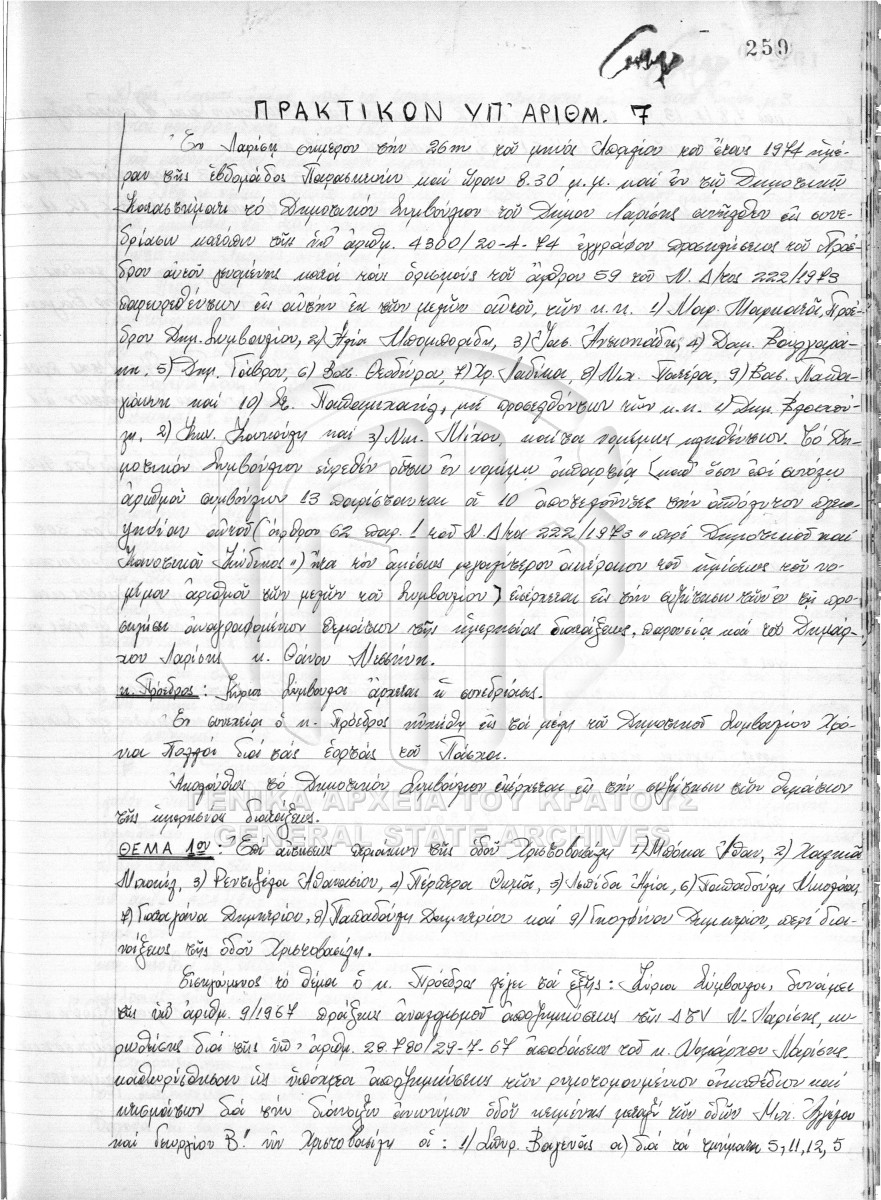 259
ΠΡΑΚΤΙΚΟΝ ΥΠ' ΑΡΙΘΜ. 7
Ἐν Λαρίσῃ σήμερον τὴν 26ην τοῦ μηνὸς Ἀπριλίου τοῦ ἔτους 1974 ἡμέ-
ραν τῆς ἑβδομάδος Παρασκευὴν καὶ ὥραν 8.30' μ.μ. καὶ ἐν τῷ Δημοτικῷ
Καταστήματι τὸ Δημοτικὸν Συμβούλιον τοῦ Δήμου Λαρίσης συνῆλθεν εἰς συνε-
δρίασιν κατόπιν τῆς ὑπ' ἀριθμ. 4300/20-4-74 ἐγγράφου προσκλήσεως τοῦ Προέ-
δρου αὐτοῦ γενομένης κατὰ τοὺς ὁρισμοὺς τοῦ ἄρθρου 59 τοῦ Ν. Δ/τος 222/1973
παρευρεθέντων εἰς αὐτὴν ἐκ τῶν μελῶν αὐτοῦ, τῶν κ.κ. 1) Μαρ. Μαρκατᾶ, Προέ-
δρου Δημ. Συμβουλίου, 2) Ἠλία Μπομπορίδη, 3) Ἰας. 4) Δαμ. Βουλγαρά-
κη, 5) Δημ. Γάβρου, 6) Βασ. Θεοδώρου, 7) Χρ. Λαδίκα 8) Νικ. Πατέρα, 9) Βασ. Παπα-
γιάννη καὶ 10) Στ. Παπαμιχαήλ, μὴ προσελθόντων τῶν κ.κ. 1) Δημ. Βλαχού-
λη, 2) Κων. καὶ 3) Νικ. Μίχου, καίτοι νομίμως κληθέντων. Τὸ Δη-
μοτικὸν Συμβούλιον εὑρεθὲν οὕτω ἐν νομίμῳ ἀπαρτίᾳ (καθ' ὅσον ἐπὶ συνόλου
ἀριθμοῦ συμβούλων 13 παρίστανται οἱ 10 ἀποτελοῦντες τὴν ἀπόλυτον πλειο-
ψηφίαν αὐτοῦ (ἄρθρον 62 παρ. 1 τοῦ Ν Δ/τος 222/1973 "περὶ Δημοτικοῦ καὶ
Κοινοτικοῦ Κώδικος") ἤτοι τὸν ἀμέσως μεγαλύτερον ἀκέραιον τοῦ ἡμίσεως τοῦ νο-
μίμου ἀριθμοῦ τῶν μελῶν τοῦ Συμβουλίου) εἰσέρχεται εἰς τὴν συζήτησιν τῶν ἐν τῇ προ-
σκλήσει ἀναγραφομένων θεμάτων τῆς ἡμερησίας διατάξεως, παρουσίᾳ καὶ τοῦ Δημάρ-
χου Λαρίσης κ. Θάνου Μεσσήνη.
κ. Πρόεδρος: Κύριοι Σύμβουλοι ἄρχεται ἡ συνεδρίασις.
Ἐν συνεχείᾳ ὁ κ. Πρόεδρος ηὐχήθη εἰς τὰ μέλη τοῦ Δημοτικοῦ Συμβουλίου Χρό-
νια Πολλὰ διὰ τὰς ἑορτὰς τοῦ Πάσχα.
Ἀκολούθως τὸ Δημοτικὸν Συμβούλιον εἰσέρχεται εἰς τὴν συζήτησιν τῶν θεμάτων
τῆς ἡμερησίας διατάξεως.
ΓΕΝΙΚΑ ΑΡΧΕΙΑ ΤΟΥ ΚΡΑΤΟΥΣ
GENERAL STATE ARCHIVES
ΘΕΜΑ 1ον: Ἐπὶ αἰτήσεως περιοίκων τῆς ὁδοῦ Χριστοβασίλη 1) Μπόκια Ἀθαν, 2) Χαλκιᾶ
3) Ρεντιζέλα Ἀθανασίου, 4) Πέρπερα 5) Λεπίδα Ἠλία, 6) Παπαδούλη Νικολάου,
7) Δημητρίου, 8) Παπαδούλη Δημητρίου καὶ 9) Δημητρίου, περὶ δια-
νοίξεως τῆς ὁδοῦ Χριστοβασίλη.
Εἰσηγούμενος τὸ θέμα ὁ κ. Πρόεδρος λέγει τὰ ἑξῆς: Κύριοι Σύμβουλοι, δυνάμει
τῆς ὑπ' ἀριθμ. 9/1967 πράξεως ἀναλογισμοῦ ἀποζημιώσεως τῆς ΔΤΥ Ν. Λαρίσης, κυ-
ρωθείσης διὰ τῆς ὑπ' ἀριθμ. 28.780/29-7-67 ἀποφάσεως τοῦ κ. Νομάρχου Λαρίσης,
καθωρίσθησαν ὡς ὑπόχρεοι ἀποζημιώσεως τῶν ρυμοτομουμένων οἰκοπέδων καὶ
κτισμάτων διὰ τὴν διάνοιξιν ἀνωνύμου ὁδοῦ κειμένης μεταξὺ τῶν ὁδῶν Μιχ. Ἀγγέλου
καὶ Γεωργίου Β! νῦν Χριστοβασίλη οἱ: 1) Σπυρ. Βαγενᾶς α) διὰ τὰ τμήματα 5, 11, 12, 5